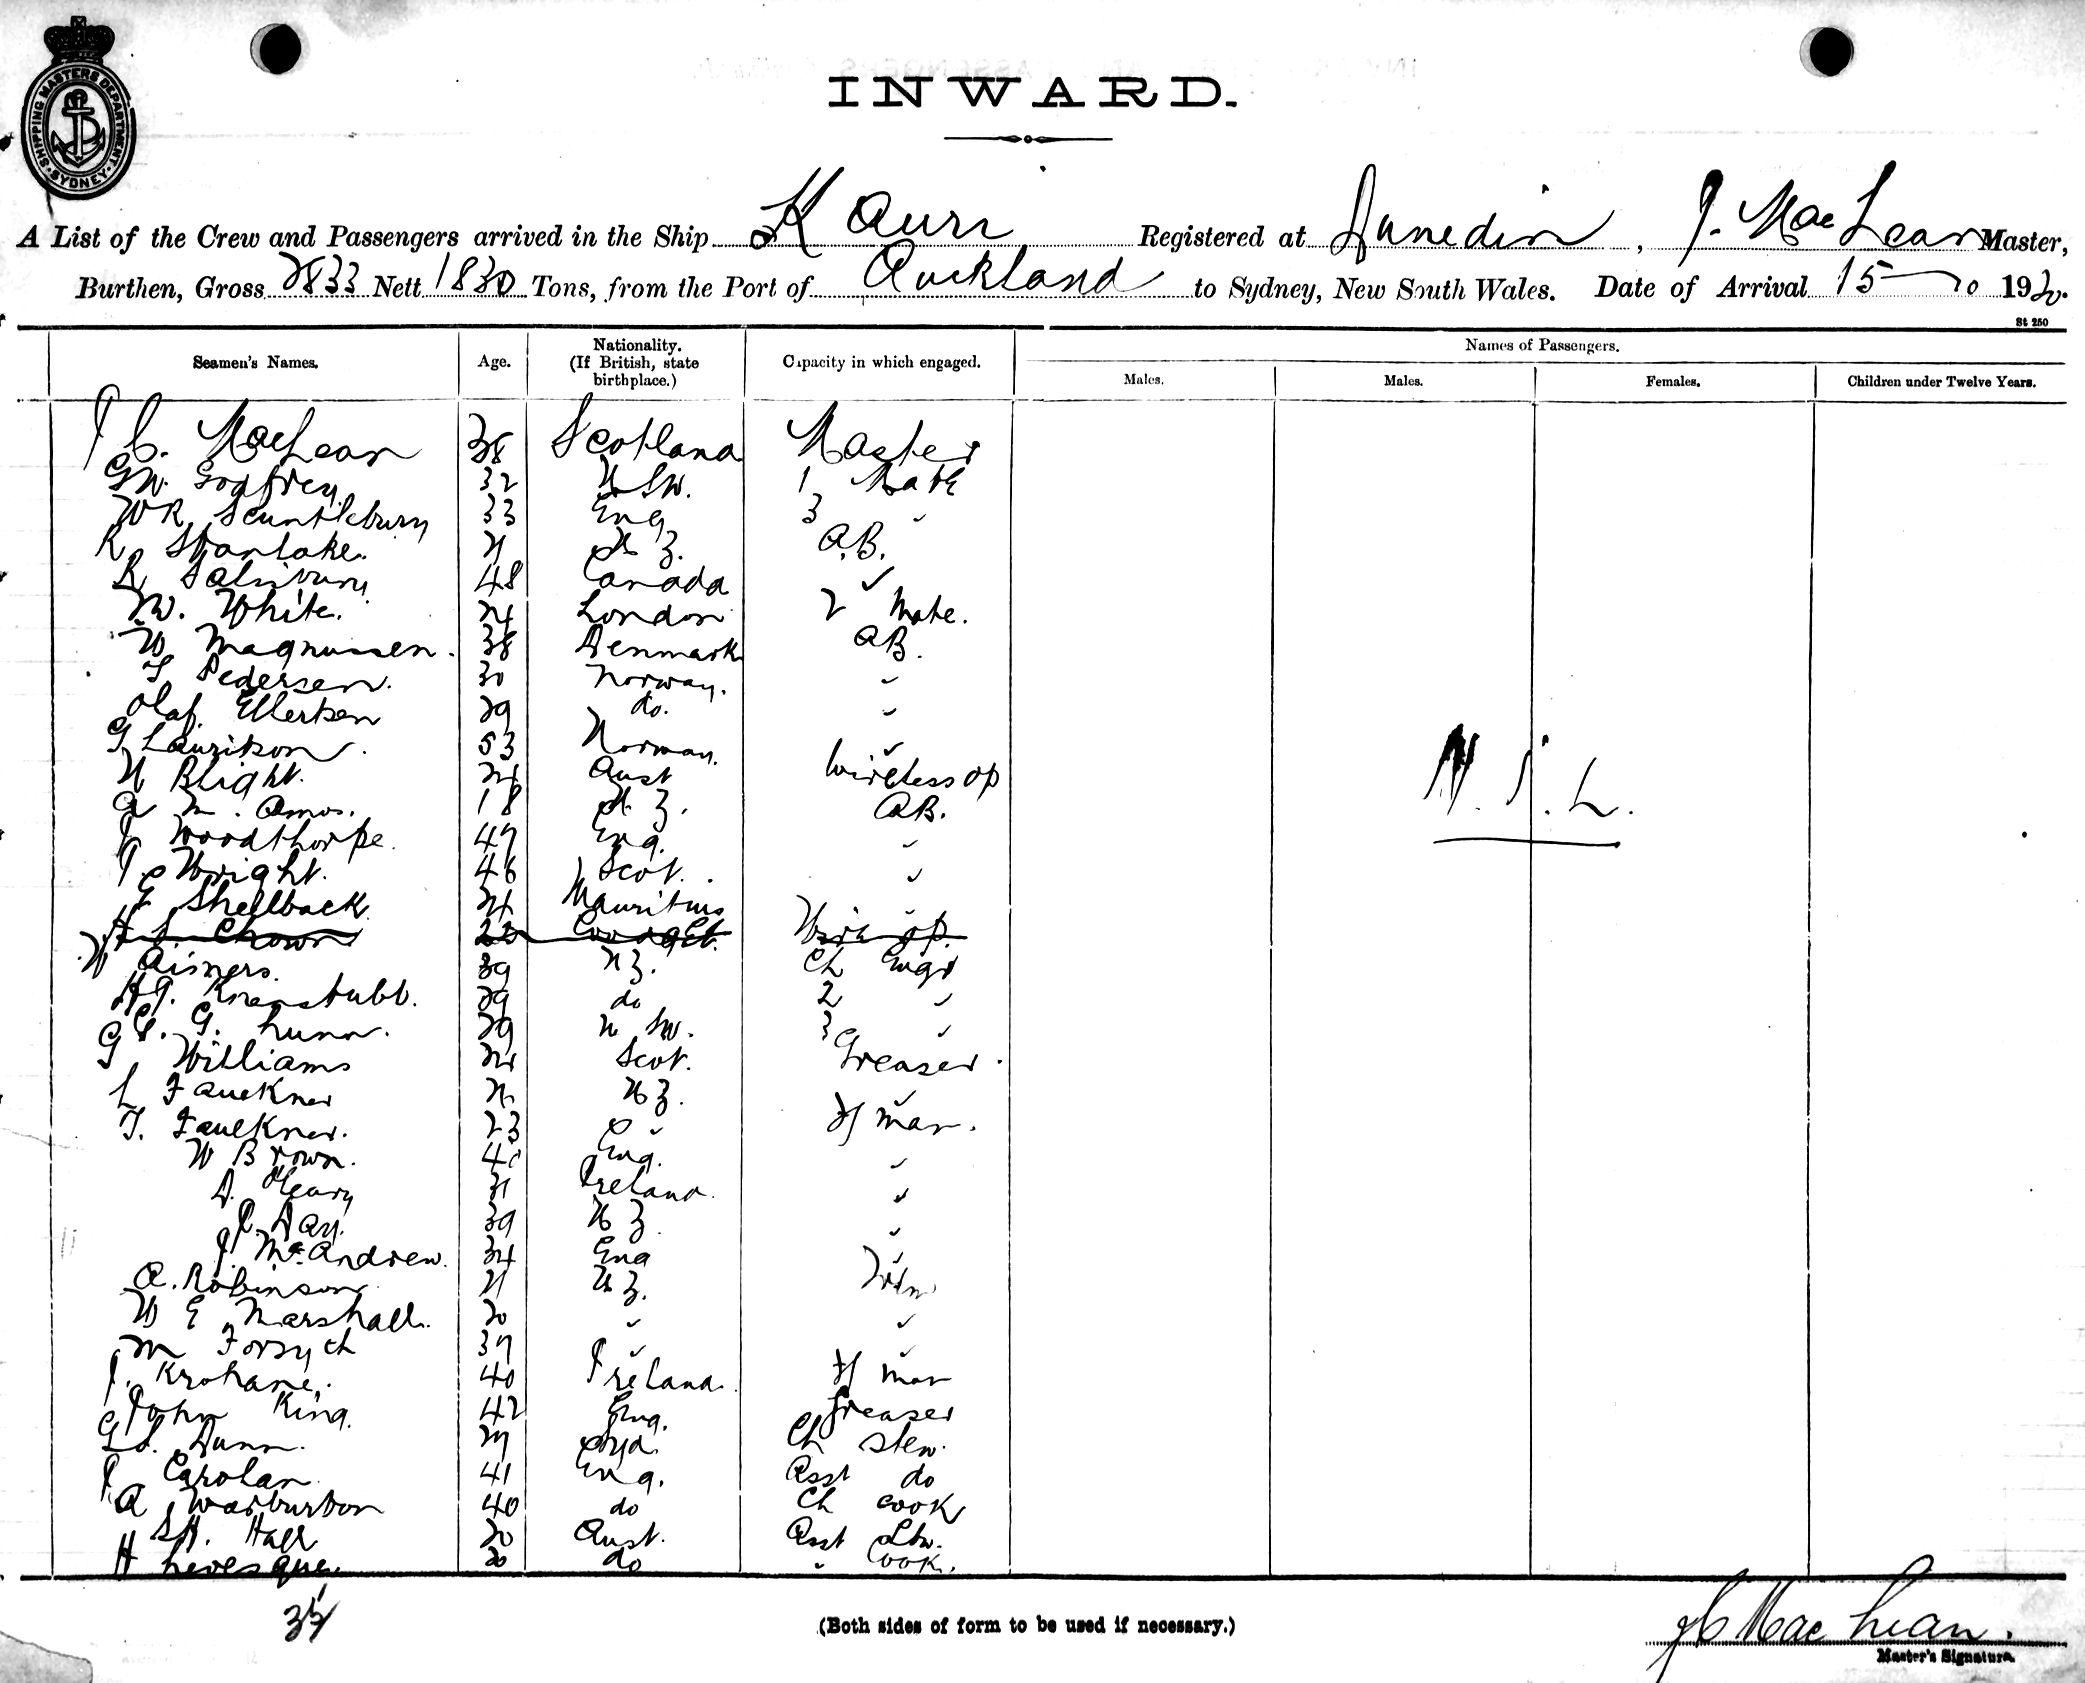 SHIPPING MASTERS DEPARTMENT SYDNEY
INWARD.
A List of the Crew and Passengers arrived in the Ship Kauri Registered at Dunedin, J. MacLean Master,
Burthen, Gross 2833 Nett 1830 Tons, from the Port of Auckland to Sydney, New South Wales. Date of Arrival 15 10 1920.
St 250
Seamen's Names. Age. Nationality. (If British, state birthplace.) Capacity in which engaged. Names of Passengers.
Males. Males. Females. Children under Twelve Years.
J C. MacLean 38 Scotland Master
GW. Godfrey 32 N SW. 1 Mate
WR Scuntlebury 33 Eng 3 "
R Stanlake. 21 N Z. A.B.
R Salisbury 48 Canada "
W. White. 24 London 2 Mate.
W Magnussen. 38 Denmark AB.
T Pedersen. 30 Norway. "
Olaf. Ellertsen 29 do. "
G Lauritson. 53 Norway. "
N Blight. 24 Aust Wireless op
A M. Amos. 18 N Z. AB.
J Woodthorpe. 47 Eng. "
J C Wright. 46 Scot. "
E Shellback 24 Mauritius "
H S Chown 22 Wire op.
W Aimers. 39 N Z. Ch Engr
HG. Knapstubb. 29 do 2 "
G C. G. Lunn. 29 N SW. 3 "
G Williams 24 Scot. Greaser.
L Faulkner 21 N Z. "
T. Faulkner. 23 " Fman.
W Brown. 40 Eng. "
D. OLeary 31 Ireland. "
J. Day. 39 N Z "
J McAndrew. 34 Eng "
A. Robinson 21 N Z. Trim
W E Marshall. 20 " "
M Forsyth 37 " "
J. Krohane. 40 Ireland. Fman
John King. 42 Eng. Greaser
G S. Dunn. 27 Syd. Ch Stew.
J Carolan 41 Eng. Asst do
A Warburton 40 do Ch cook
SH. Hall 20 Aust. Asst Stw.
H Levesque. 20 do " Cook.
N. I. L.
35
(Both sides of form to be used if necessary.)
J C MacLean.
Master's Signature.